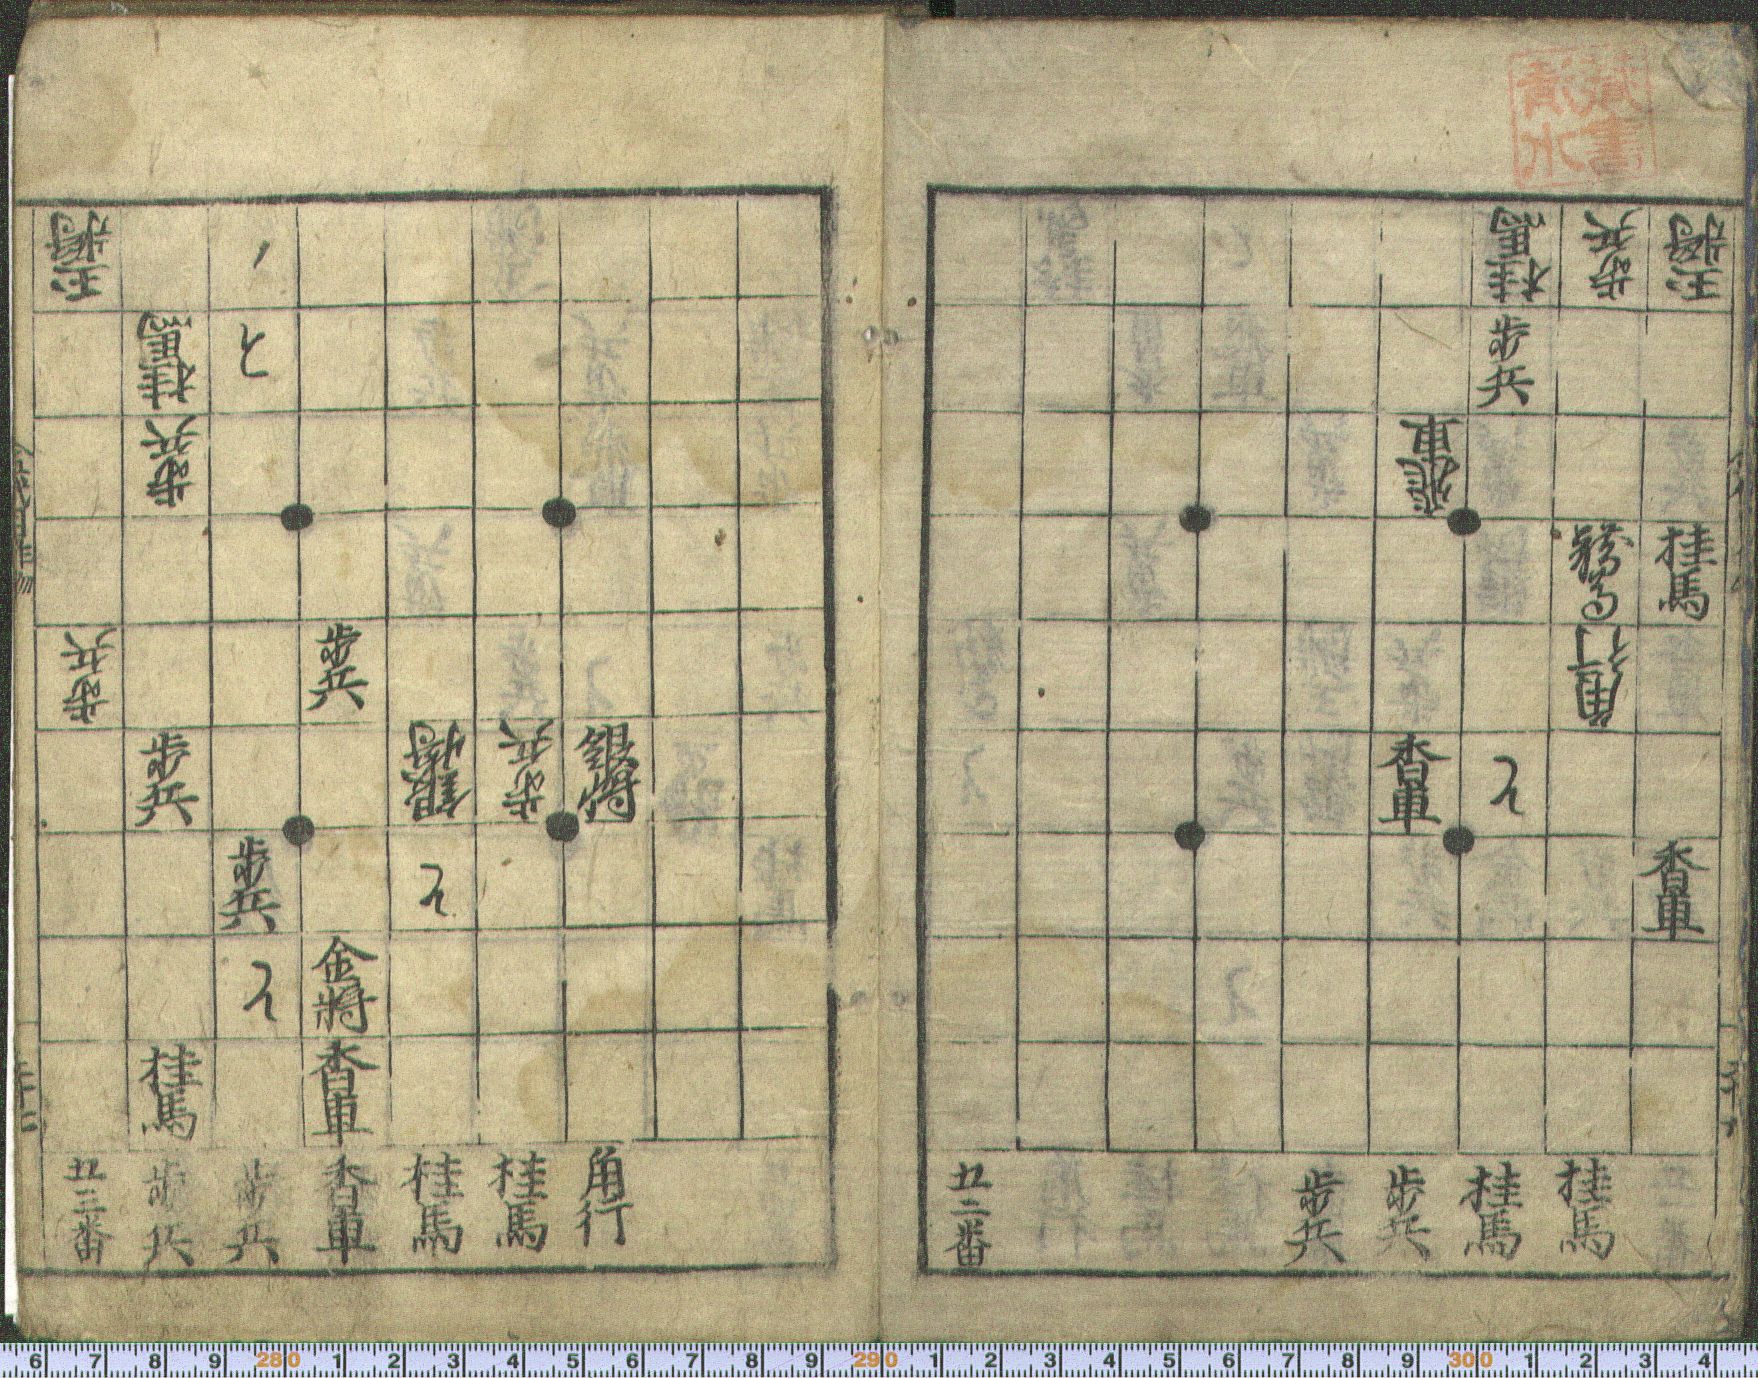 蔵書
清水
桂馬 歩兵 玉将
歩兵
飛車
桂馬
角行
香車 と
香車
五二番 歩兵 歩兵 桂馬 桂馬
玉将
桂馬 と
歩兵
歩兵 歩兵
歩兵 銀将 歩兵 銀将
歩兵 と
と 金将
桂馬 香車
五三番 歩兵 歩兵 香車 桂馬 桂馬 角行
6 7 8 9 280 1 2 3 4 5 6 7 8 9 290 1 2 3 4 5 6 7 8 9 300 1 2 3 4